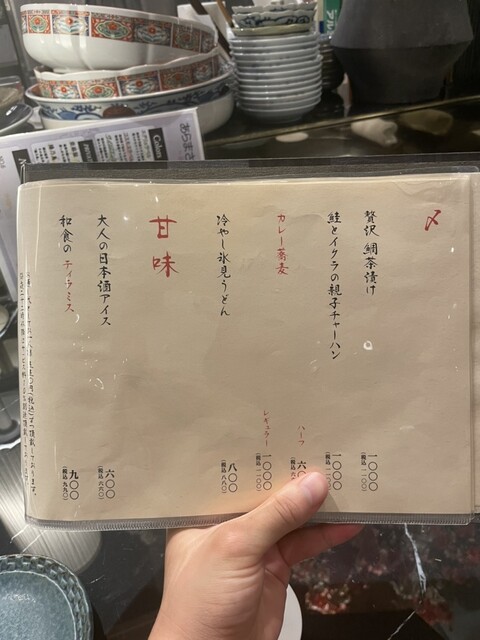 〆
贅沢 鯛茶漬け
一〇〇〇
(税込 一一〇〇)
鮭とイクラの親子チャーハン
一〇〇〇
(税込 一一〇〇)
カレー蕎麦
ハーフ
六〇
レギュラー
一〇〇〇
(税込 一一〇〇)
冷やし氷見うどん
八〇〇
(税込 八八〇)
甘味
大人の日本酒アイス
六〇〇
(税込 六六〇)
和食のティラミス
九〇〇
(税込 九九〇)